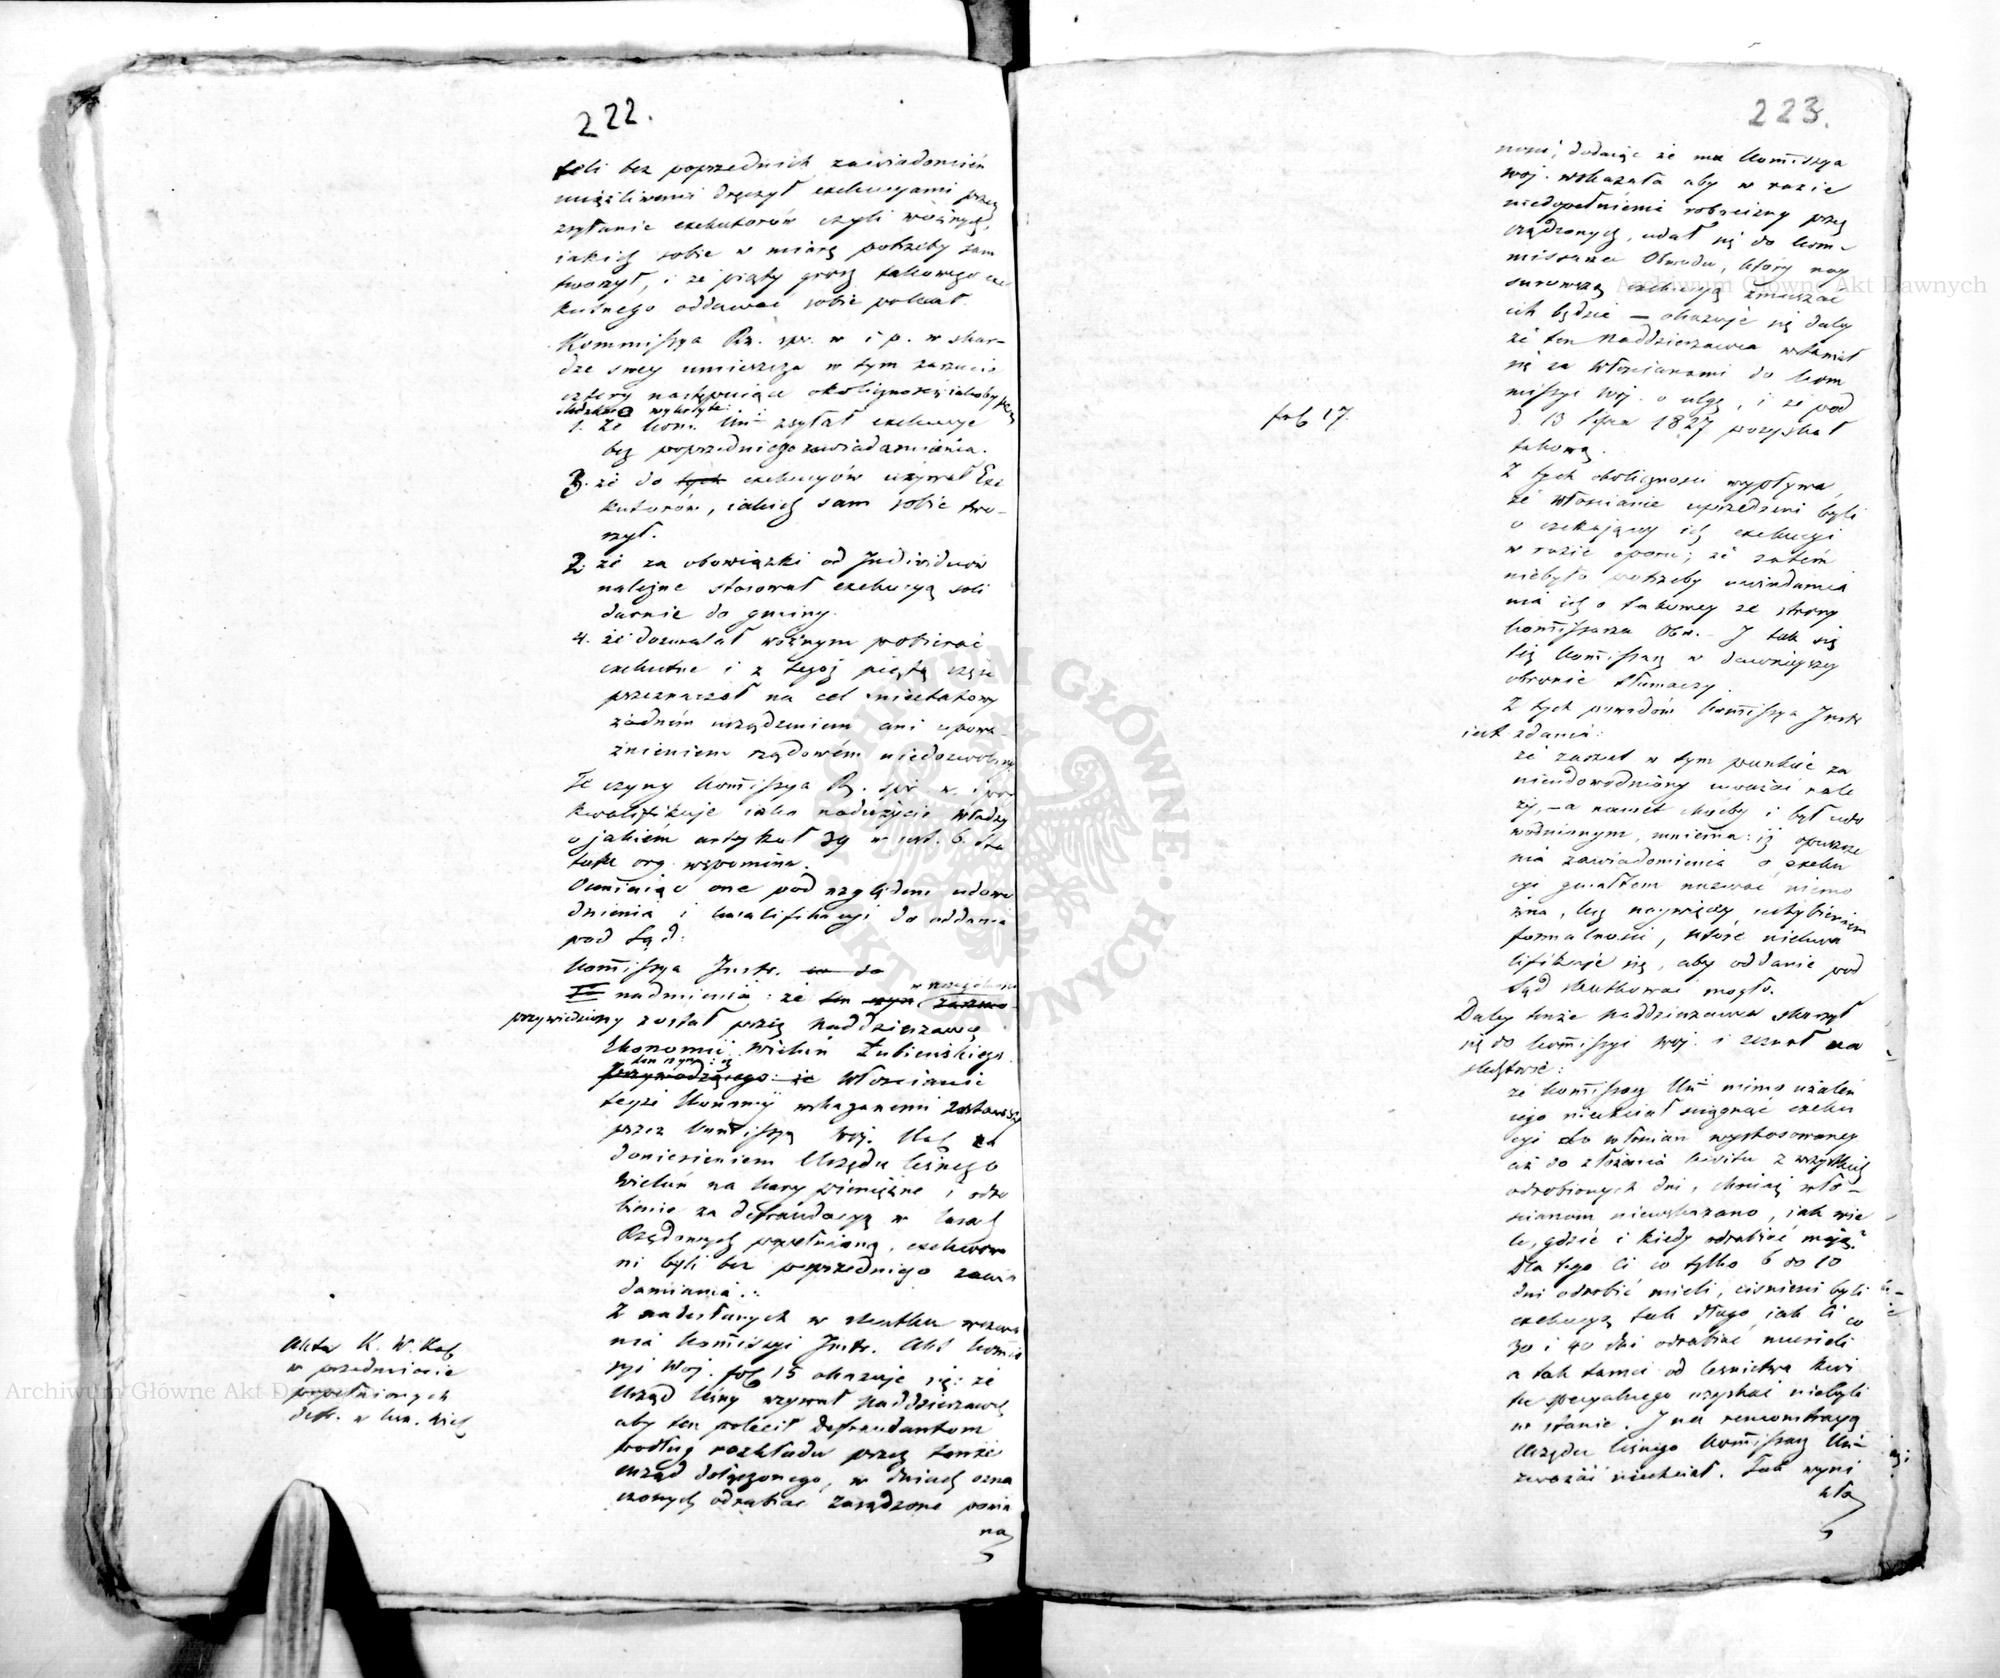 222.
teli bez poprzednich zawiadomień
uciążliwemi dręczył exekucyami przez
zsyłanie exekutorów czyli woźnych,
jakich sobie w miarę potrzeby sam
tworzył, i że piąty grosz takowego exe
kutnego oddawać sobie polecał
Kommissya Rz. spr. w i p. w skar-
dze swey umieszcza w tym zarzucie
cztery następujące okoliczności jakoby przez
śledztwo wykryte:
1. że Kom. Un zsyłał exekucye
bez poprzedniego zawiadamiania.
3. że do tych exekucyów używał Exe
kutorów, jakich sam sobie two-
rzył.
2. że za obowiązki od Individuów
należne stosował exekucyą soli
darnie do gminy.
4. że dozwalał woźnym pobierać
exekutne i z tegoż piątą część
przeznaczał na cel nieetatowy
żadném urządzeniem ani upowa
żnieniem rządowém niedozwolony
Te czyny Kommissya R. spr. w. i pol
kwalifikuje jako nadużycie władzy
o jakiém artykuł 39 w ust. 6. Sta
tutu org. wspomina.
Oceniając one pod względem udowo
dnienia i kwalifikacyi do oddania
pod Sąd:
Kommissya Instr. co do
I nadmienia: że ten czyn w szczególności zarzuc
przywiedziony został przez Naddzierzawcę
Ekonomii Wieluń Łubieńskiego.
ten czyn: iż
przywodzącego: że Włościanie
teyże Ekonomii wskazanemi zostawszy
przez Kommissyą Woj. Kal za
doniesieniem Urzędu leśnego
Wieluń na kary pieniężne i odro
bienie za defraudacyą w lasach
Rządowych popełnioną, exekwowa
ni byli bez poprzedniego zawia
damiania.:
Z nadesłanych w skutku wezwa
nia Kommissyi Instr. Akt Kommis
syi Woj. fol 15 okazuje się: że
Urząd leśny wzywał Naddzierzawcę
aby ten polecił Defraudantom
podług rozkładu przez tenże
urząd dołączonego, w dniach ozna
czonych odrabiać zasądzone powin
no
Akta K. W. Kal
w przedmiocie
popełnionych
defr. w las. Wiel
223.
ności, dodając że ma Kommissya
Woj. wskazała aby w razie
niedopełnienia robocizny przez
rządzonych, udał się do Kom-
missarza Obwodu, który nay
surowszą exekucyą zmuszać
ich będzie – okazuje się daley
że ten Naddzierzawca wstawiał
się za Włościanami do Kom
missyi Woj. o ulgę, i że pod
d. 13 lipca 1827 pozyskał
takową.
fol 17.
Z tych okoliczności wypływa,
że włościanie uprzedzeni byli
o czekającey ich exekucyi
w razie oporu; że zatém
niebyło potrzeby uwiadamia
nia ich o takowey ze strony
Kommissarza Obw. – I tak się
też Kommissarz w dawnieyszey
obronie tłumaczy.
Z tych powodów Kommissya Instr
jest zdania:
że zarzut w tym punkcie za
nieudowodniony uważać nale
ży, – a nawet choćby i był udo
wodnionym, mniema: iż opuszcze
nia zawiadomienia o exeku
cyi gwałtem nazwać niemo
żna, lecz naywięcey uchybieniem
formalności, które niekwa
lifikuje się, aby oddanie pod
Sąd skutkować mogło.
Daley tenże Naddzierzawca skarżył
się do Kommissyi Woj. i zeznał na
śledztwie:
że Kommissarz Un mimo użaleń
jego niechciał ściągnąć exeku
cyi do włościan wystosowaney
aż do złożenia kwitu z wszystkich
odrobionych dni, chociaż wło-
ścianom niewskazano, jak wie
le, gdzie i kiedy odrabiać mają?
Dla tego ci co tylko 6 do 10
dni odrobić mieli, ciśnieni byli
exekucyą tak długo, jak ci co
30 i 40 dni odrabiać musieli
a tak tamci od leśnictwa kwi
tu specyalnego uzyskać niebyli
w stanie. I na remonstracyą
Urzędu leśnego Kommissarz Un
zważać niechciał. Tak wyni
kła